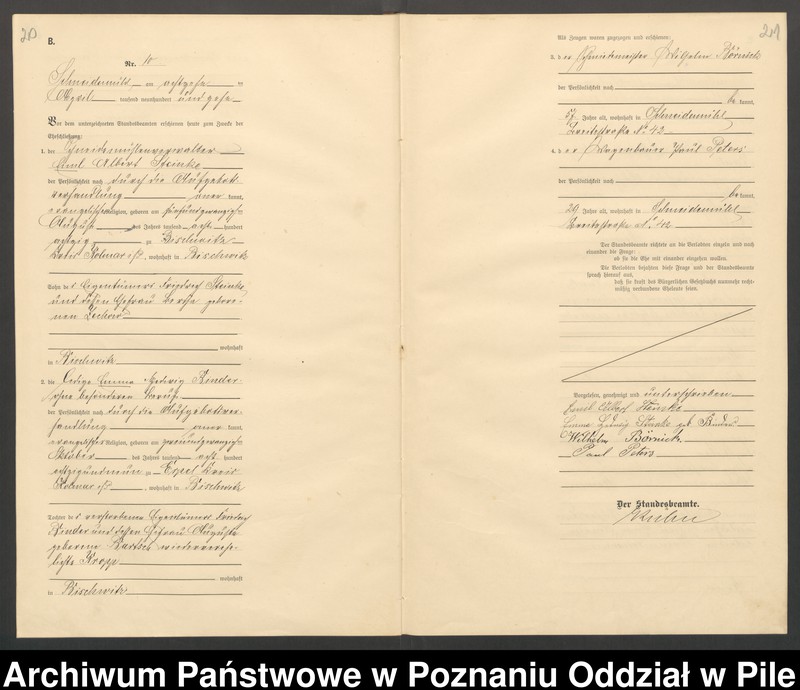 B.
Nr. 10
Schneidemühl am achtzehn ten
April tausend neunhundert und zehn
Vor dem unterzeichneten Standesbeamten erschienen heute zum Zwecke der
Eheschließung:
1. der Schneidemühlenverwalter
Emil Albert Steinke
der Persönlichkeit nach durch die Aufgebots-
verhandlung aner kannt,
evangelischer Religion, geboren am fünfundzwanzigsten
August des Jahres tausend acht hundert
achtzig zu Bischwitz
Kreis Kolmar i/P., wohnhaft in Bischwitz
Sohn des Eigentümers Friedrich Steinke
und dessen Ehefrau gebore-
nen
wohnhaft
in Bischwitz
2. die ledige Emma Hedwig Binder
ohne besonderen Beruf
der Persönlichkeit nach durch die Aufgebotsver-
handlung aner kannt,
evangelischer Religion, geboren am zweiundzwanzigsten
Oktober des Jahres tausend acht hundert
achtzigundneun zu Kreis
Kolmar i/P., wohnhaft in Bischwitz
Tochter des verstorbenen Eigentümers
Binder und dessen Ehefrau Auguste
geborene Bartsch wiederverehe-
lichte Kropp
wohnhaft
in Bischwitz
Als Zeugen waren zugezogen und erschienen:
3. der Schmiedemeister Wilhelm Börnick
der Persönlichkeit nach
be kannt,
57 Jahre alt, wohnhaft in Schneidemühl
Breitestraße No 42
4. der Wagenbauer Paul Peters
der Persönlichkeit nach
be kannt,
29 Jahre alt, wohnhaft in Schneidemühl
Breitestraße No 42
Der Standesbeamte richtete an die Verlobten einzeln und nach
einander die Frage:
ob sie die Ehe mit einander eingehen wollen.
Die Verlobten bejahten diese Frage und der Standesbeamte
sprach hierauf aus,
daß sie kraft des Bürgerlichen Gesetzbuchs nunmehr recht-
mäßig verbundene Eheleute seien.
Vorgelesen, genehmigt und unterschrieben
Emil Albert Steinke
Emma Hedwig Steinke geb. Binder
Wilhelm Börnick
Paul Peters
Der Standesbeamte.
Archiwum Państwowe w Poznaniu Oddział w Pile